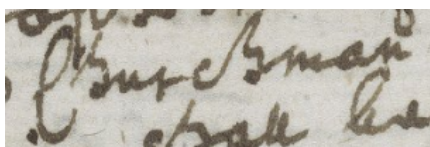 Churchman
shall be